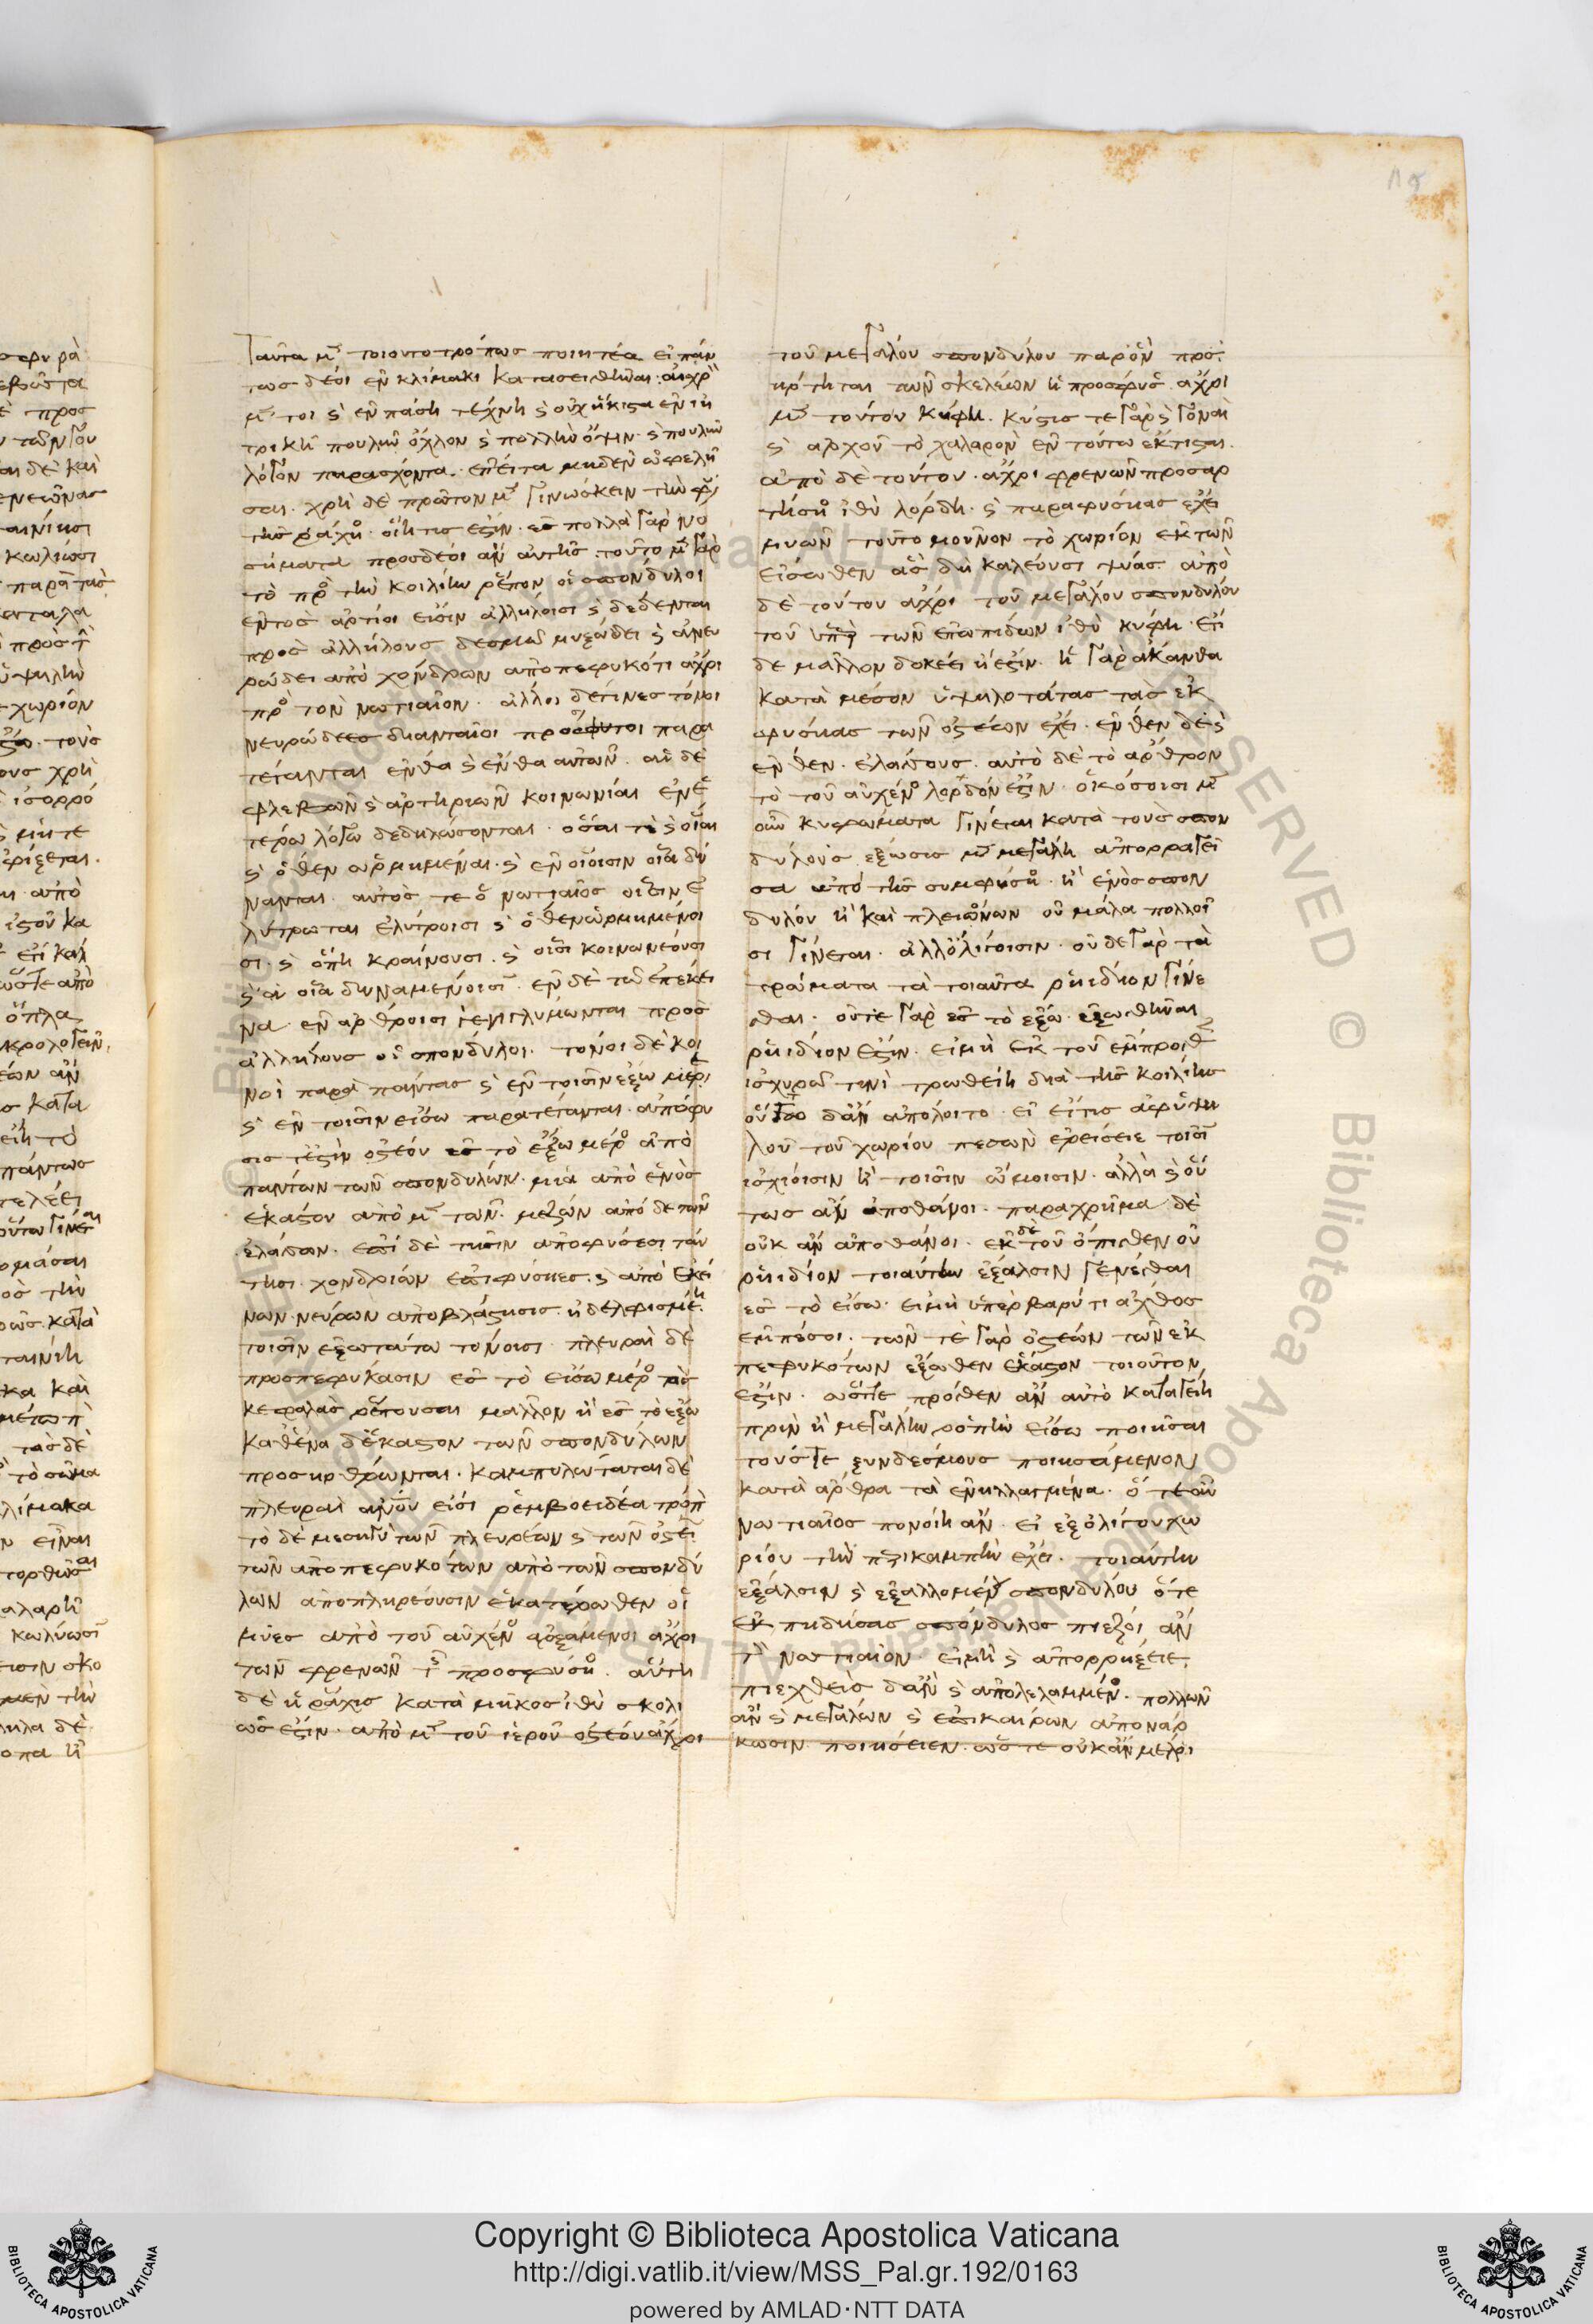 Ταῦτα μὲν τοιουτοτρόπως ποιητέα εἰ πάν
τως δέοι ἐν κλίμακι κατασεισθῆναι. αἰσχρὸν
μέν τοι καὶ ἐν πάσῃ τέχνῃ καὶ οὐχ ἥκιστα ἐν ἰη
τρικῇ πουλὺν ὄχλον καὶ πολλὴν ὄψιν. καὶ πουλὺν
λόγον παρασχόντα. ἔπειτα μηδὲν ὠφελῆ
σαι. χρὴ δὲ πρῶτον μὲν γινώσκειν τὴν φύσιν
τῆς ῥάχιος. οἵη τις ἐστίν. ἐς πολλὰ γὰρ νο
σήματα προσδέοι ἂν αὐτῆς. τοῦτο μὲν γὰρ
τὸ πρὸς τὴν κοιλίην ῥέπον οἱ σπόνδυλοι
ἐντὸς ἄρτιοί εἰσιν ἀλλήλοισι καὶ δέδενται
πρὸς ἀλλήλους δεσμῷ μυξώδει καὶ ἀνευ
ρώδει ἀπὸ χόνδρων ἀποπεφυκότι ἄχρι
πρὸς τὸν νωτιαῖον. ἄλλοι δέ τινες τόνοι
νευρώδεες διανταῖοι πρόσφυτοι παρα
τέτανται ἔνθα καὶ ἔνθα αὐτῶν. αἱ δὲ
φλεβῶν καὶ ἀρτηριῶν κοινωνίαι ἐν ἑ
τέρῳ λόγῳ δεδηλώσονται. ὅσαι τε καὶ οἷαι
καὶ ὅθεν ὡρμημέναι. καὶ ἐν οἵοισιν οἷα δύ
νανται. αὐτὸς τε ὁ νωτιαῖος οἷσιν ἐ
λύτρωται ἐλύτροισι καὶ ὅθεν ὡρμημένοι
σι. καὶ ὅπη κραίνουσι. καὶ οἷσι κοινωνέουσι
καὶ οἷα δυναμένοισι. ἐν δὲ τῷ ἐπέκει
να ἐν ἄρθροισι γεγιγλύμωνται πρὸς
ἀλλήλους οἱ σπόνδυλοι. τόνοι δὲ κοι
νοὶ παρὰ πάντας καὶ ἐν τοῖσιν ἔξω μέρεσι
καὶ ἐν τοῖσιν εἴσω παρατέτανται. ἀπόφυ
σις τέ ἐστιν ὀστέου ἐς τὸ ἔξω μέρος ἀπὸ
πάντων τῶν σπονδύλων. μία ἀπὸ ἑνὸς
ἑκάστου ἀπὸ μὲν τῶν μεζόνων ἀπὸ δὲ τῶν
ἐλασσόνων. ἐπὶ δὲ τῇσιν ἀποφύσεσι ταύ
τῃσι χονδρίων ἐπιφύσιες. καὶ ἀπὸ ἐκεί
νων νεύρων ἀποβλάστησις ἠδελφισμένη
τοῖσιν ἐξωτάτω τόνοισι. πλευραὶ δὲ
προσπεφύκασιν ἐς τὸ εἴσω μέρος τὰς
κεφαλὰς ῥέπουσαι μᾶλλον ἢ ἐς τὸ ἔξω
καθ' ἕνα δ' ἕκαστον τῶν σπονδύλων
προσήρθρωνται. καμπυλώταται δὲ
πλευραὶ ἀνθρώπου εἰσὶ ῥεμβοειδέα τρόπον
τὸ δὲ μεσηγὺ τῶν πλευρέων καὶ τῶν ὀστέων
τῶν ἀποπεφυκότων ἀπὸ τῶν σπονδύ
λων ἀποπληρέουσιν ἑκατέρωθεν οἱ
μύες ἀπὸ τοῦ αὐχένος ἀρξάμενοι ἄχρι
τῶν φρενῶν τῆς προσφύσιος. αὕτη
δὲ ἡ ῥάχις κατὰ μῆκος ἰθυσκολι
ός ἐστιν. ἀπὸ μὲν τοῦ ἱεροῦ ὀστέου ἄχρι
τοῦ μεγάλου σπονδύλου παρ' ὃν προσ
ήρτηται τῶν σκελέων ἡ πρόσφυσις. ἄχρι
μὲν τούτου κυφή. κύστις τε γὰρ καὶ γοναὶ
καὶ ἀρχοῦ τὸ χαλαρὸν ἐν τούτῳ ἔκτισται.
ἀπὸ δὲ τούτου. ἄχρι φρενῶν προσαρ
τήσιος ἰθυλόρδη. καὶ παραφύσιας ἔχει
μυῶν τοῦτο μοῦνον τὸ χωρίον ἐκ τῶν
εἴσωθεν ἃς δὴ καλέουσι ψύας. ἀπὸ
δὲ τούτου ἄχρι τοῦ μεγάλου σπονδύλου
τοῦ ὑπὲρ τῶν ἐπωμίδων ἰθυκύφη. ἔτι
δὲ μᾶλλον δοκέει ἢ ἐστίν. ἡ γὰρ ἄκανθα
κατὰ μέσον ὑψηλοτάτας τὰς ἐκ
φύσιας τῶν ὀστέων ἔχει. ἔνθεν δὲ καὶ
ἔνθεν. ἐλάσσους. αὐτὸ δὲ τὸ ἄρθρον
τὸ τοῦ αὐχένος λορδόν ἐστιν. ὁκόσοισι μὲν
οὖν κυφώματα γίνεται κατὰ τοὺς σπον
δύλους ἔξωσις μὲν μεγάλη ἀπορραγεῖ
σα ἀπὸ τῆς συμφύσιος ἢ ἑνὸς σπον
δύλου ἢ καὶ πλειόνων οὐ μάλα πολλοῖ
σι γίνεται. ἀλλ' ὀλίγοισιν. οὐδὲ γὰρ τὰ
τρώματα τὰ τοιαῦτα ῥηίδιον γίνε
σθαι. οὔτε γὰρ ἐς τὸ ἔξω ἐξωσθῆναι
ῥηίδιόν ἐστιν. εἰ μὴ ἐκ τοῦ ἔμπροσθεν
ἰσχυρῷ τινὶ τρωθείη διὰ τῆς κοιλίης
οὕτω δ' ἂν ἀπόλοιτο. εἰ εἴ τις ἀφ' ὑψη
λοῦ τοῦ χωρίου πεσὼν ἐρείσειε τοῖσι
ἰσχίοισιν ἢ τοῖσιν ὤμοισιν. ἀλλὰ καὶ οὕ
τως ἂν ἀποθάνοι. παραχρῆμα δὲ
οὐκ ἂν ἀποθάνοι. ἐκ δὲ τοῦ ὄπισθεν οὐ
ῥηίδιον τοιαύτην ἔξαλσιν γενέσθαι
ἐς τὸ εἴσω. εἰ μὴ ὑπερβαρύ τι ἄχθος
ἐμπέσοι. τῶν τε γὰρ ὀστέων τῶν ἐκ
πεφυκότων ἔξωθεν ἕκαστον τοιοῦτον
ἐστιν. ὥστε πρόσθεν ἂν αὐτὸ καταγείη
πρὶν ἢ μεγάλην ῥοπὴν εἴσω ποιῆσαι
τούς τε ξυνδέσμους ποιησάμενον
κατὰ ἄρθρα τὰ ἐνηλλαγμένα. ὅ τε οὖν
νωτιαῖος πονοίη ἄν. εἰ ἐξ ὀλίγου χω
ρίου τὴν περικαμπὴν ἔχει. τοιαύτην
ἔξαλσιν καὶ ἐξαλλομένου σπονδύλου ὅτε
ἐκπηδήσας σπόνδυλος πιέζοι ἂν
τὸν νωτιαῖον. εἰ μὴ καὶ ἀπορρήξειε.
πιεχθεὶς δ' ἂν καὶ ἀπολελαμμένος. πολλῶν
ἂν καὶ μεγάλων καὶ ἐπικαίρων ἀπονάρ
κωσιν ποιήσειεν. ὥστε οὐκ ἂν μέλοι
Copyright © Biblioteca Apostolica Vaticana
http://digi.vatlib.it/view/MSS_Pal.gr.192/0163
powered by AMLAD·NTT DATA